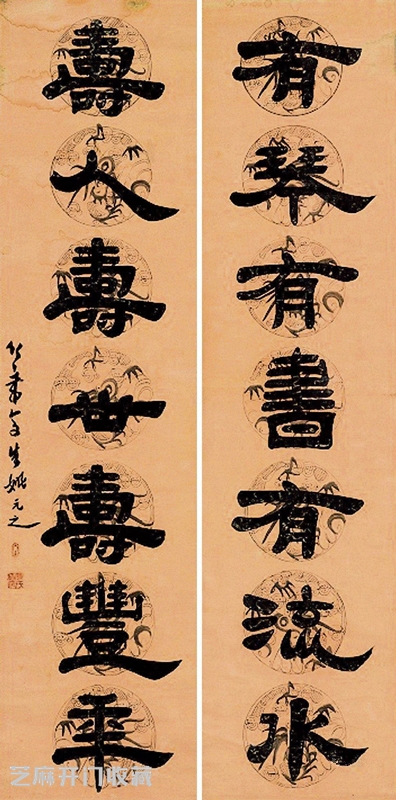 有琴有書有流水
壽人壽世壽豐年
竹葉亭生姚元之
芝麻开门收藏